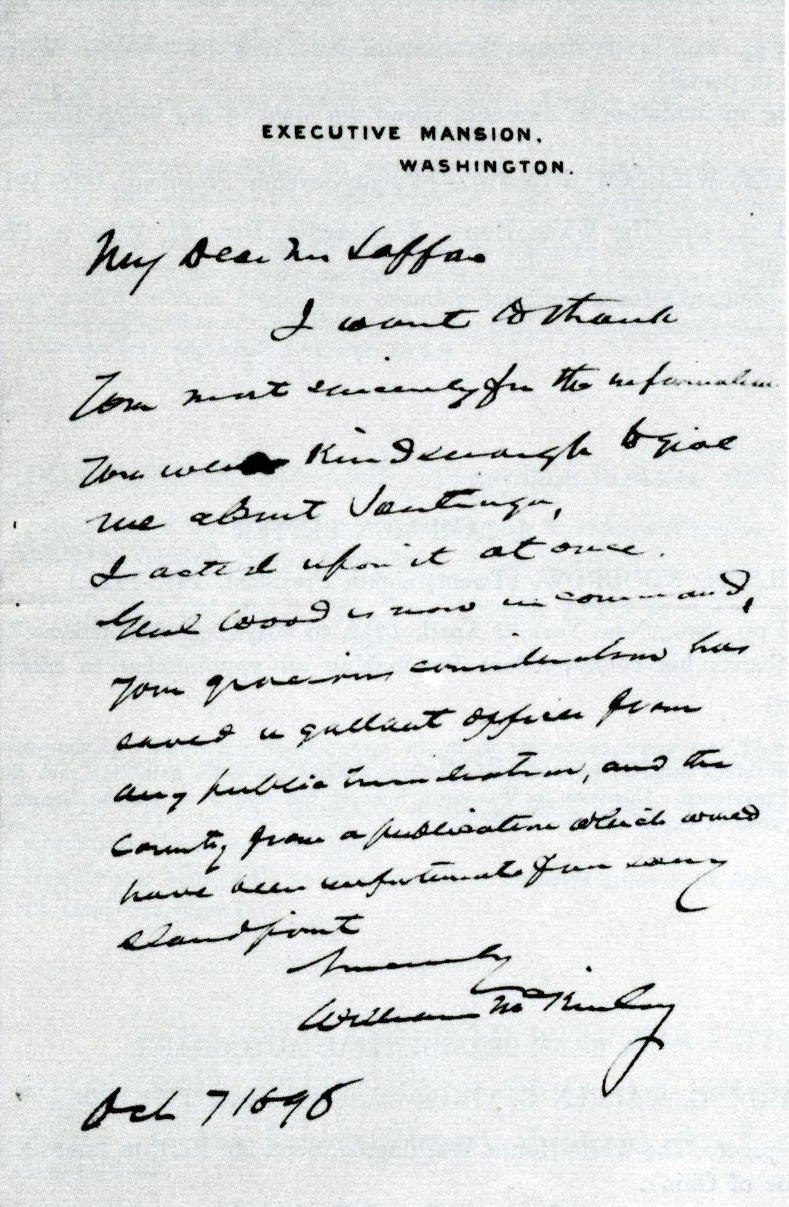 EXECUTIVE MANSION.
WASHINGTON.
My Dear Mr Laffan
I want to thank
You most sincerely for the information
You were kind enough to give
me about Santiago,
I acted upon it at once.
Genl Wood is now in command,
Your gracious consideration has
saved a gallant officer from
any public humiliation, and the
Country from a publication which would
have been unfortunate from every
standpoint
Sincerely
William McKinley
Oct 7 1898